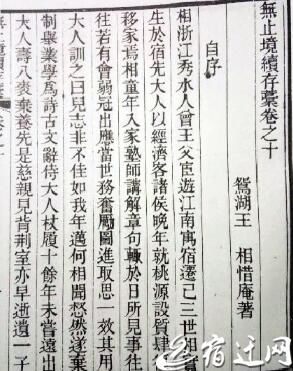 無止境續存藁卷之十
鴛湖王 相惜庵著
自序
相浙江秀水人曾王父宦遊江南寓宿遷已三世相實
生於宿先大人以經濟客諸侯晚年就桃源設質肆
移家焉相童年入家塾師講解章句輒於日所見事往
往若有會弱冠出應當世務奮勵圖進取思一效其用
大人訓之曰兒志非不佳如我年邁何相聞怒然遂棄
制舉業學為詩古文辭侍大人杖履十餘年未嘗遠出
大人壽八袠棄養先是慈親見背荆室亦早逝遺一子
宿迁网